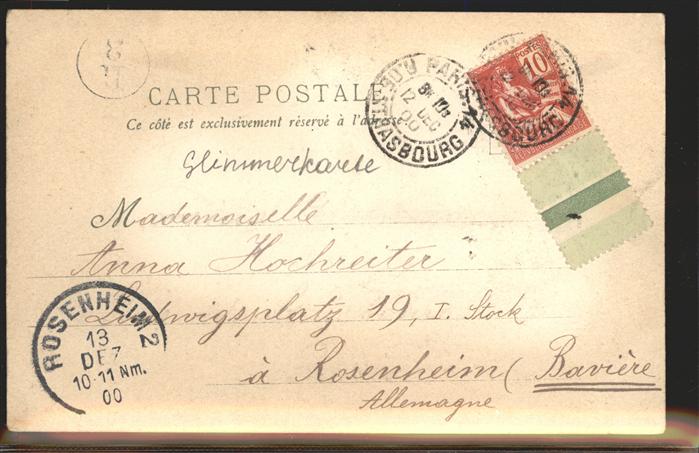 CARTE POSTALE
Ce côté est exclusivement réservé à l'adresse
Glimmerkarte
Mademoiselle
Anna Hochreiter
Ludwigsplatz 19, I. Stock
à Rosenheim (Bavière
Allemagne
POSTES
10
PARIS
12
DEC
00
ASBOURG
ROSENHEIM 2
13
DEZ
10-11 Nm.
00